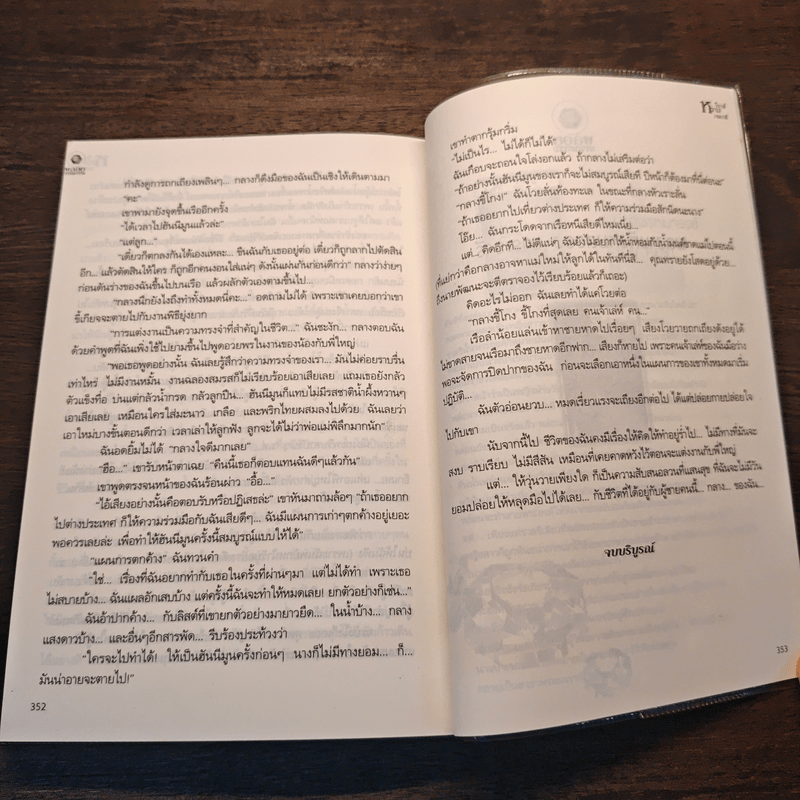 กำลังดูการถกเถียงเพลินๆ... กลางก็ดึงมือของฉันเป็นเชิงให้เดินตามมา
"คะ"
เขาพามายังจุดขึ้นเรืออีกครั้ง
"ได้เวลาไปฮันนีมูนแล้วล่ะ"
"แต่ลูก..."
"เดี๋ยวก็ตกลงกันได้เองแหละ... ขืนฉันกับเธออยู่ต่อ เดี๋ยวก็ถูกลากไปตัดสิน
อีก... แล้วตัดสินให้ใคร ก็ถูกอีกคนงอนใส่แน่ๆ ดังนั้นเผ่นกันก่อนดีกว่า" กลางว่าง่ายๆ
ก่อนดันร่างของฉันขึ้นไปบนเรือ แล้วผลักตัวเองตามขึ้นไป...
"กลางนึกยังไงถึงทำทั้งหมดนี่คะ..." อดถามไม่ได้ เพราะเขาเคยบอกว่าเขา
ขี้เกียจจะตายไปกับงานพิธียุ่งยาก
"การแต่งงานเป็นความทรงจำที่สำคัญในชีวิต..." ฉันชะงัก... กลางตอบฉัน
ด้วยคำพูดที่ฉันเพิ่งใช้ไปยามขึ้นไปพูดอวยพรในงานของน้องกับพี่ใหญ่
"พอเธอพูดอย่างนั้น ฉันเลยรู้สึกว่าความทรงจำของเรา... มันไม่ค่อยราบรื่น
เท่าไหร่ ไม่มีงานหมั้น งานฉลองสมรสก็ไม่เรียบร้อยเอาเสียเลย แถมเธอยังกลัว
ตัวแข็งทื่อ บ่นแต่กลัวน้ำกรด กลัวลูกปืน... ฮันนีมูนก็แทบไม่มีรสชาติน้ำผึ้งหวานๆ
เอาเสียเลย เหมือนใครใส่มะนาว เกลือ และพริกไทยผสมลงไปด้วย ฉันเลยว่า
เอาใหม่บางขั้นตอนดีกว่า เวลาเล่าให้ลูกฟัง ลูกจะได้ไม่ว่าพ่อแม่พิลึกมากนัก"
ฉันอดยิ้มไม่ได้ "กลางใจดีมากเลย"
"ฮื่อ..." เขารับหน้าตาเฉย "คืนนี้เธอก็ตอบแทนฉันดีๆแล้วกัน"
เขาพูดตรงจนหน้าของฉันร้อนผ่าว "อื้อ..."
"ไอ้เสียงอย่างนั้นคือตอบรับหรือปฏิเสธล่ะ" เขาหันมาถามล้อๆ "ถ้าเธออยาก
ไปต่างประเทศ ก็ให้ความร่วมมือกับฉันเสียดีๆ... ฉันมีแผนการเก่าๆตกค้างอยู่เยอะ
พอควรเลยล่ะ เพื่อทำให้ฮันนีมูนครั้งนี้สมบูรณ์แบบให้ได้"
"แผนการตกค้าง" ฉันทวนคำ
"ใช่... เรื่องที่ฉันอยากทำกับเธอในครั้งที่ผ่านๆมา แต่ไม่ได้ทำ เพราะเธอ
ไม่สบายบ้าง... ฉันแผลอักเสบบ้าง แต่ครั้งนี้ฉันจะทำให้หมดเลย! ยกตัวอย่างก็เช่น..."
ฉันอ้าปากค้าง... กับลิสต์ที่เขายกตัวอย่างมายาวยืด... ในน้ำบ้าง... กลาง
แสงดาวบ้าง... และอื่นๆอีกสารพัด... รีบร้องประท้วงว่า
"ใครจะไปทำได้! ให้เป็นฮันนีมูนครั้งก่อนๆ นางก็ไม่มีทางยอม... ก็...
มันน่าอายจะตายไป!"
352
เขาทำตากรุ้มกริ่ม
"ไม่เป็นไร... ไม่ได้ก็ไม่ได้"
ฉันเกือบจะถอนใจโล่งอกแล้ว ถ้ากลางไม่เสริมต่อว่า
"ถ้าอย่างนั้นฮันนีมูนของเราก็จะไม่สมบูรณ์เสียที ปีหน้าก็ต้องมาที่นี่ต่อนะ"
"กลางขี้โกง!" ฉันโวยลั่นท้องทะเล ในขณะที่กลางหัวเราะลั่น
"ถ้าเธออยากไปเที่ยวต่างประเทศ ก็ให้ความร่วมมือสักนิดนะนาง"
โอ๊ย... ฉันกระโดดจากเรือหนีเสียดีไหมเนี่ย...
แต่... คิดอีกที... ไม่ดีแน่ๆ ฉันยังไม่อยากให้น้ำหอมกับน้ำมนต์ขาดแม่ไปตอนนี้
(ที่แย่กว่าคือกลางอาจหาแม่ใหม่ให้ลูกได้ในทันทีนี่สิ... คุณทรายยังโสดอยู่ด้วย...
ถึงนายพัฒนะจะตีตราจองไว้เรียบร้อยแล้วก็เถอะ)
คิดอะไรไม่ออก ฉันเลยทำได้แค่โวยต่อ
"กลางขี้โกง ขี้โกงที่สุดเลย คนเจ้าเล่ห์ คน..."
เรือลำน้อยแล่นเข้าหาชายหาดไปเรื่อยๆ เสียงโวยวายถกเถียงดังอยู่ได้
ไม่ขาดสายจนเรือมาถึงชายหาดอีกฟาก... เสียงก็หายไป เพราะคนเจ้าเล่ห์ของฉันมือว่าง
พอจะจัดการปิดปากของฉัน ก่อนจะเลือกเอาหนึ่งในแผนการของเขาทั้งหมดมาเริ่ม
ปฏิบัติ...
ฉันตัวอ่อนยวบ... หมดเรี่ยวแรงจะเถียงอีกต่อไป ได้แต่ปล่อยกายปล่อยใจ
ไปกับเขา
นับจากนี้ไป ชีวิตของฉันคงมีเรื่องให้คิดให้ทำอยู่ร่ำไป... ไม่มีทางที่มันจะ
สงบ ราบเรียบ ไม่มีสีสัน เหมือนที่เคยคาดหวังไว้ตอนจะแต่งงานกับพี่ใหญ่
แต่... ให้วุ่นวายเพียงใด ก็เป็นความสับสนอลวนที่แสนสุข ที่ฉันจะไม่มีวัน
ยอมปล่อยให้หลุดมือไปได้เลย... กับชีวิตที่ได้อยู่กับผู้ชายคนนี้... กลาง... ของฉัน...
จบบริบูรณ์
353